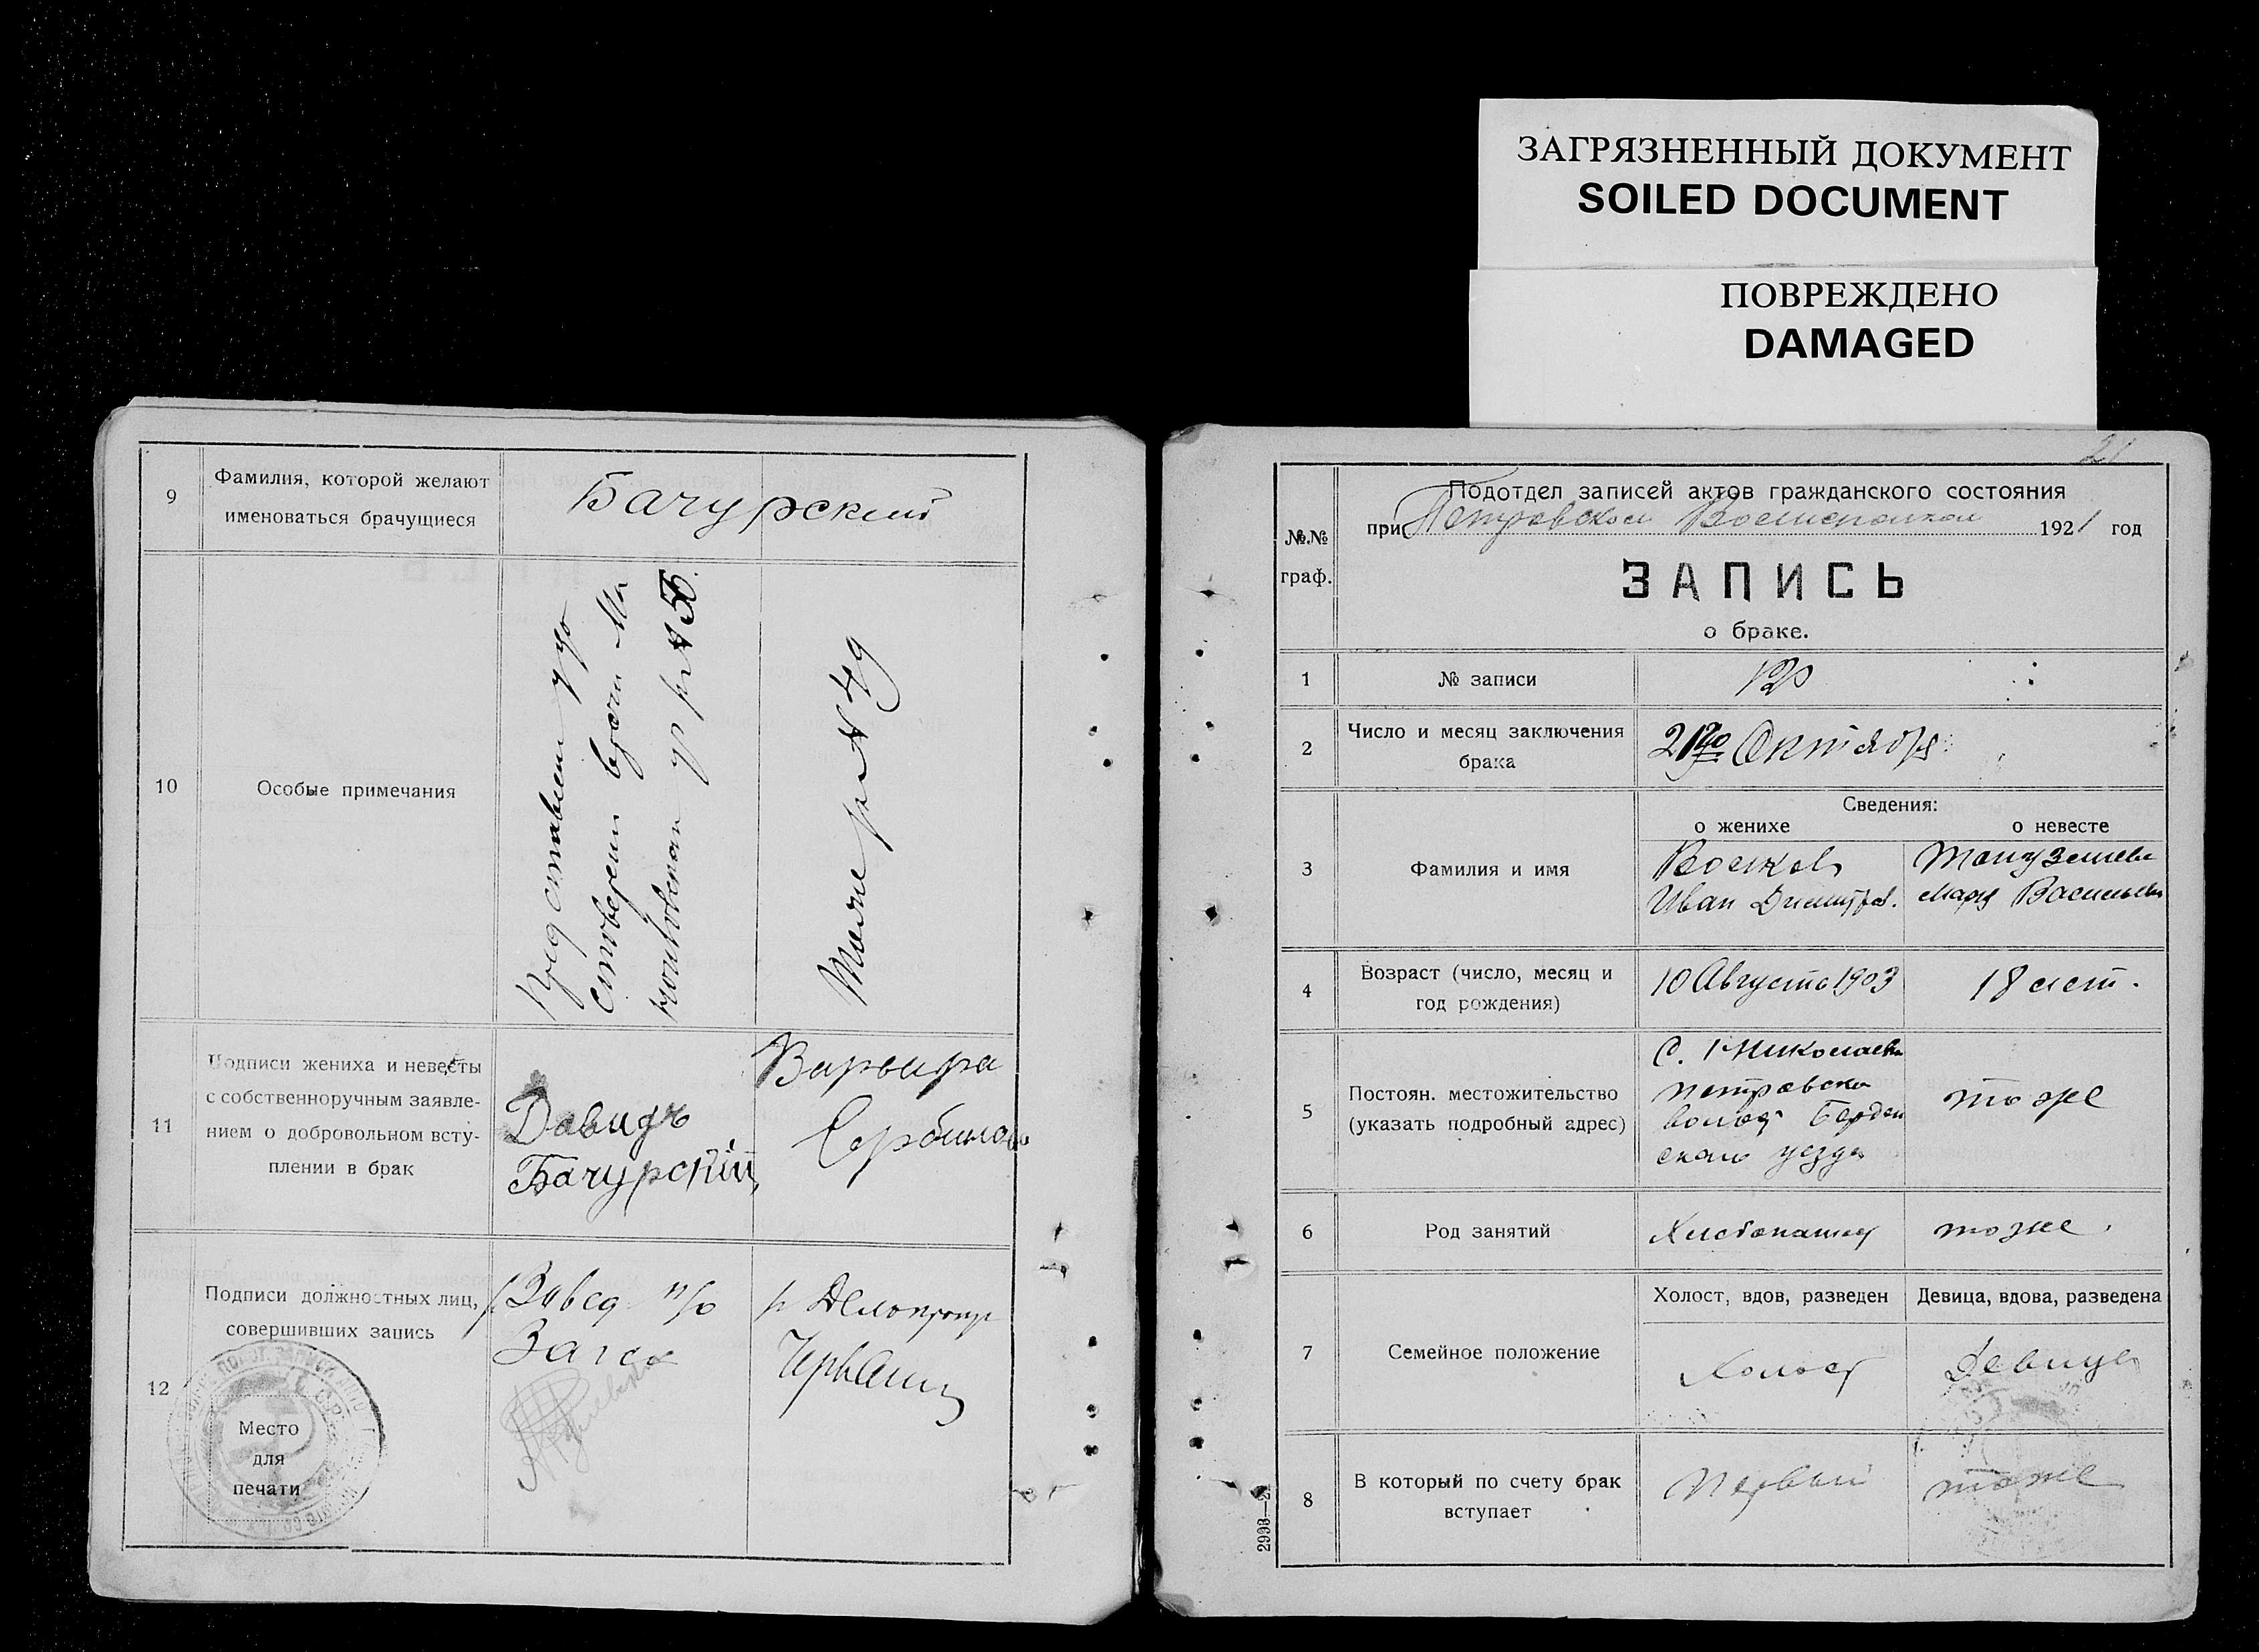 ЗАГРЯЗНЕННЫЙ ДОКУМЕНТ
SOILED DOCUMENT
ПОВРЕЖДЕНО
DAMAGED
9
Фамилия, которой желают
именоваться брачущиеся
Бачурский
10
Особые примечания
Представлен удо
стоверен
№ 50
Тоже № 49
11
Подписи жениха и невесты
с собственноручным заявле-
нием о добровольном всту-
плении в брак
Давидъ
Бачурскій
Варвара
12
Подписи должностных лиц,
совершивших запись
Завед п/о
Загса
Место
для
печати
21
№№
граф.
Подотдел записей актов гражданского состояния
при Петровском 1921 год
ЗАПИСЬ
о браке.
1
№ записи
2
Число и месяц заключения
брака
21го Октября
Сведения:
о женихе
о невесте
3
Фамилия и имя
Иван Дмитров.
Васильев
4
Возраст (число, месяц и
год рождения)
10 Августа 1903
18 лет.
5
Постоян. местожительство
(указать подробный адрес)
с. Николаевка
Петровско
волос Бердян
скаго уезда
тоже
6
Род занятий
Хлебопашец
тоже
7
Семейное положение
Холост, вдов, разведен
Девица, вдова, разведена
Холост
Девица
8
В который по счету брак
вступает
Первый
тоже